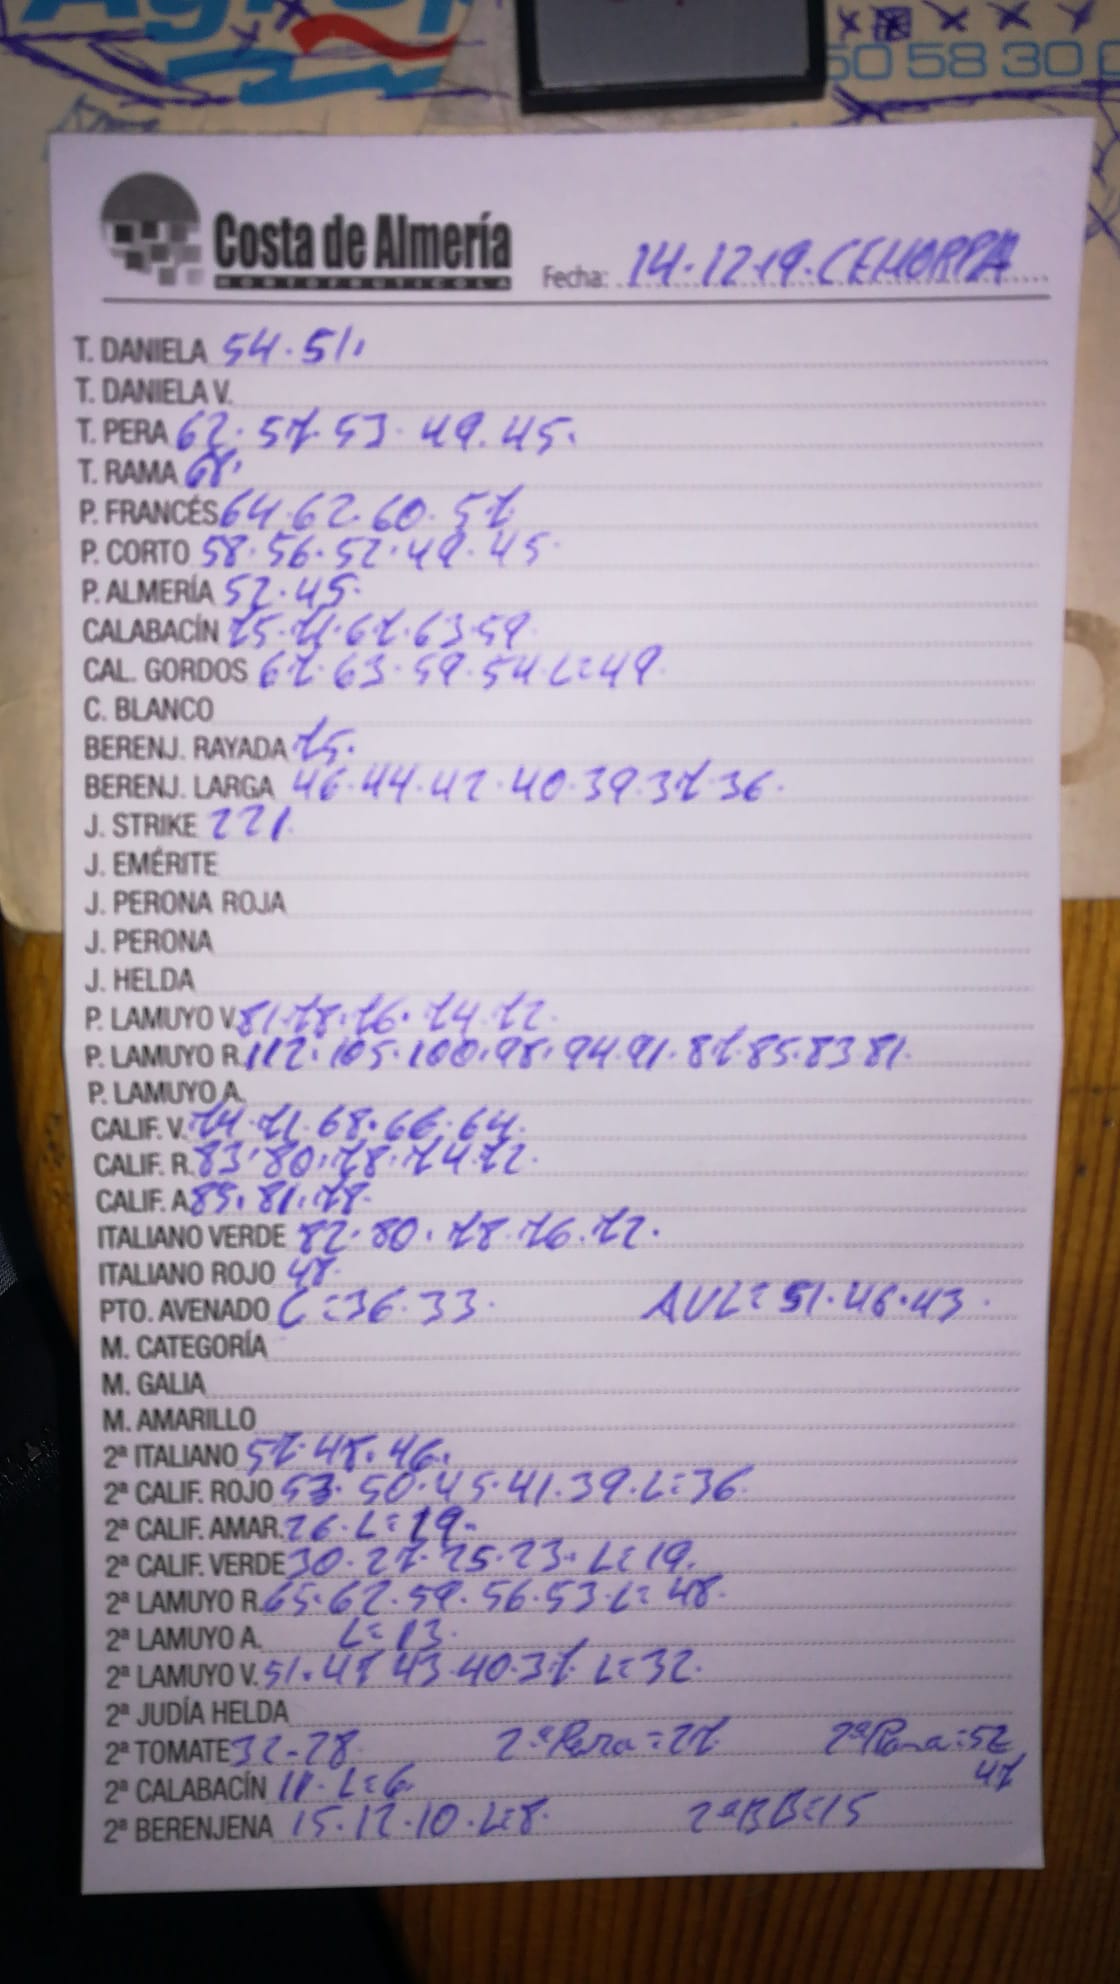 50 58 30
Costa de Almería
HORTOFRUTICOLA
Fecha: 14.12.19. CEHORPA
T. DANIELA 54.51.
T. DANIELA V.
T. PERA 62.57.53.49.45.
T. RAMA 68.
P. FRANCÉS 64.62.60.57
P. CORTO 58.56.52.49.45
P. ALMERÍA 52.45.
CALABACÍN 75.71.67.63.59.
CAL. GORDOS 67.63.59.54.L=49.
C. BLANCO
BERENJ. RAYADA 75.
BERENJ. LARGA 46.44.42.40.39.37.36.
J. STRIKE 221.
J. EMÉRITE
J. PERONA ROJA
J. PERONA
J. HELDA
P. LAMUYO V. 81.78.76.74.72.
P. LAMUYO R. 112.105.100.98.94.91.87.85.83.81.
P. LAMUYO A.
CALIF. V. 74.71.68.66.64.
CALIF. R. 83.80.78.74.72.
CALIF. A. 85.81.78.
ITALIANO VERDE 82.80.78.76.72.
ITALIANO ROJO 48.
PTO. AVENADO C=36.33. AVL=51.46.43.
M. CATEGORÍA
M. GALIA
M. AMARILLO
2ª ITALIANO 57.48.46.
2ª CALIF. ROJO 53.50.45.41.39.L=36.
2ª CALIF. AMAR. 26.L=19.
2ª CALIF. VERDE 30.27.25.23.L=19.
2ª LAMUYO R. 65.62.59.56.53.L=48.
2ª LAMUYO A. L=13.
2ª LAMUYO V. 51.47.43.40.37.L=32.
2ª JUDÍA HELDA
2ª TOMATE 32-28. 2ªPera=27 2ªRama=52
47
2ª CALABACÍN 11.L=6.
2ª BERENJENA 15.12.10.L=8. 2ªBB=15